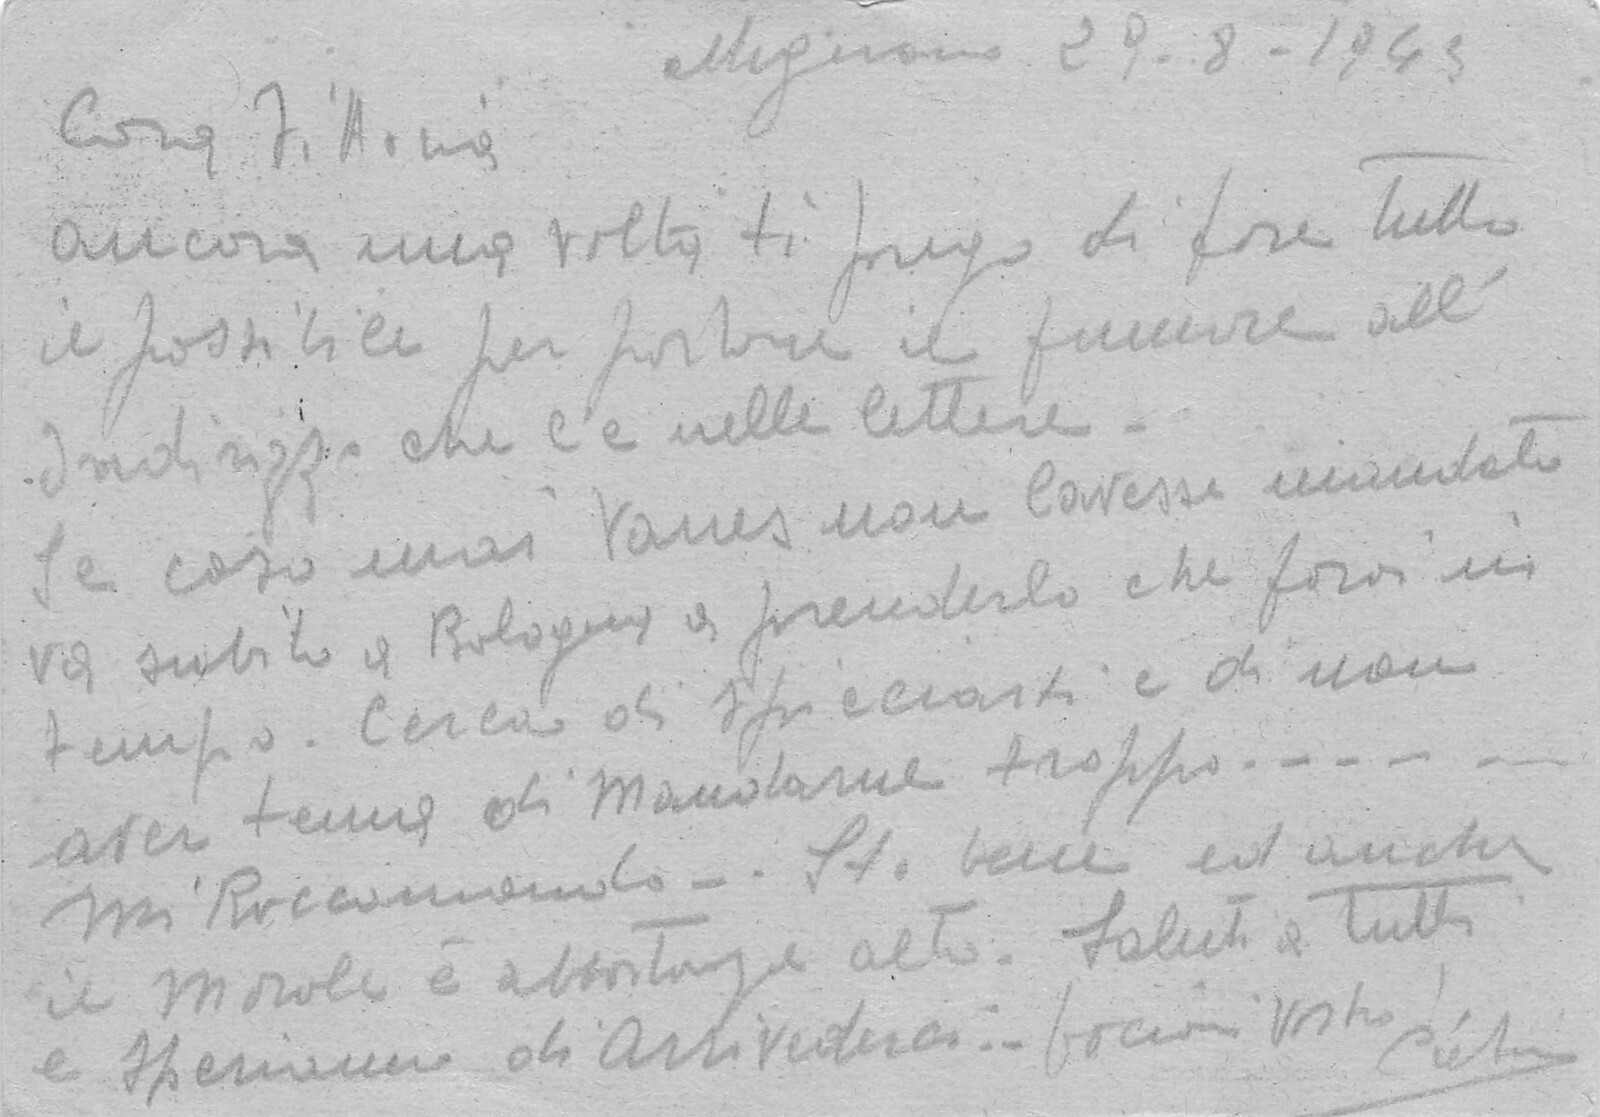 29-8-1943
Cara Vittoria
ancora una volta ti prego di fare tutto
il possibile per portare il fumare all'
Indirizzo che c'e nelle lettere -
Se caso mai Vannes non lavesse mandato
va subito a Bologna a prenderlo che farai in
tempo. Cerca di spicciarti e di non
aver tema di Mandarne troppo.-----
Mi Raccomando -. Sto bene ed anche
il Morale è abbastanza alto. Saluti a tutti
e Speriamo di Arrivederci.- bacioni Vostro